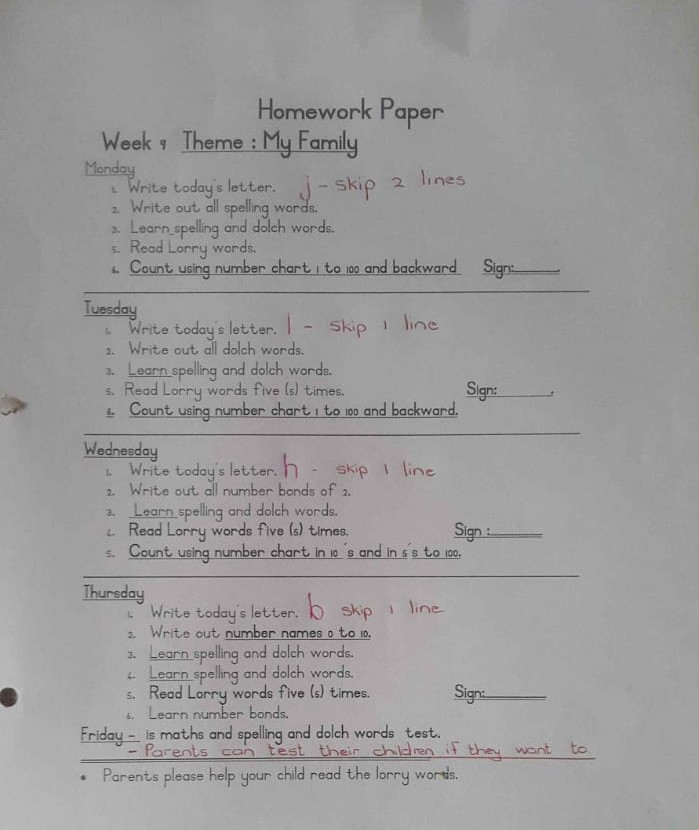 Homework Paper
Week 9 Theme : My Family
Monday
1. Write today's letter. j - skip 2 lines
2. Write out all spelling words.
3. Learn spelling and dolch words.
5. Read Lorry words.
6. Count using number chart 1 to 100 and backward Sign:______.
Tuesday
1. Write today's letter. l - skip 1 line
2. Write out all dolch words.
3. Learn spelling and dolch words.
5. Read Lorry words five (5) times. Sign:______.
6. Count using number chart 1 to 100 and backward.
Wednesday
1. Write today's letter. h - skip 1 line
2. Write out all number bonds of 2.
3. Learn spelling and dolch words.
4. Read Lorry words five (5) times. Sign :______
5. Count using number chart in 10 's and in 5's to 100.
Thursday
1. Write today's letter. b skip 1 line
2. Write out number names 0 to 10.
3. Learn spelling and dolch words.
4. Learn spelling and dolch words.
5. Read Lorry words five (5) times. Sign:______
6. Learn number bonds.
Friday - is maths and spelling and dolch words test.
- Parents can test their children if they want to
• Parents please help your child read the lorry words.